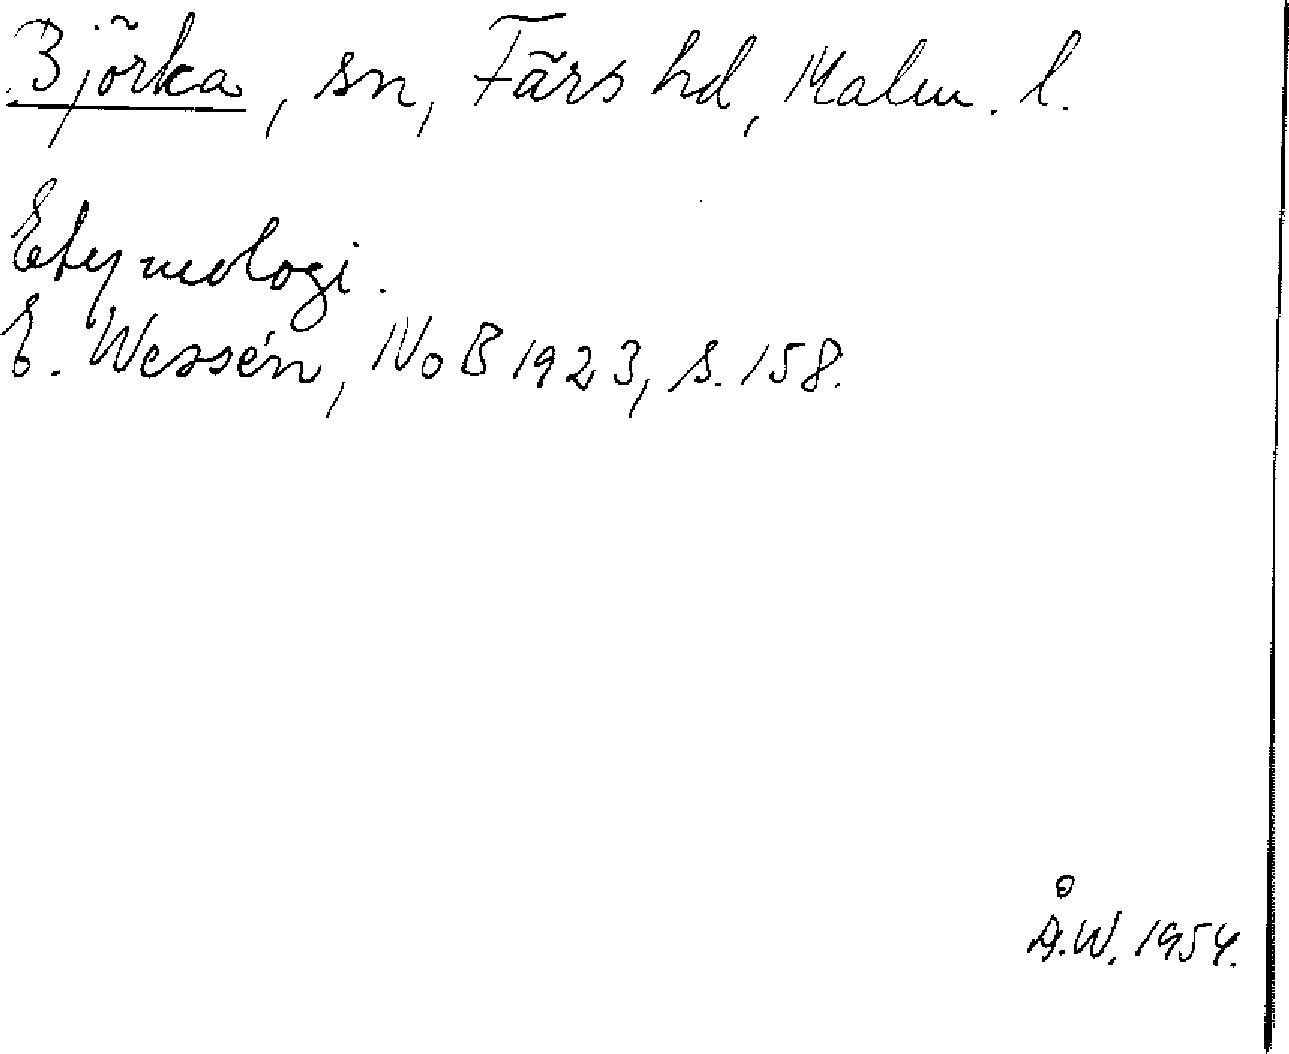 Björka, sn, Färs hd, Malm. l.
Etymologi.
E. Wessén, NoB 1923, s. 158.
Å.W. 1954.